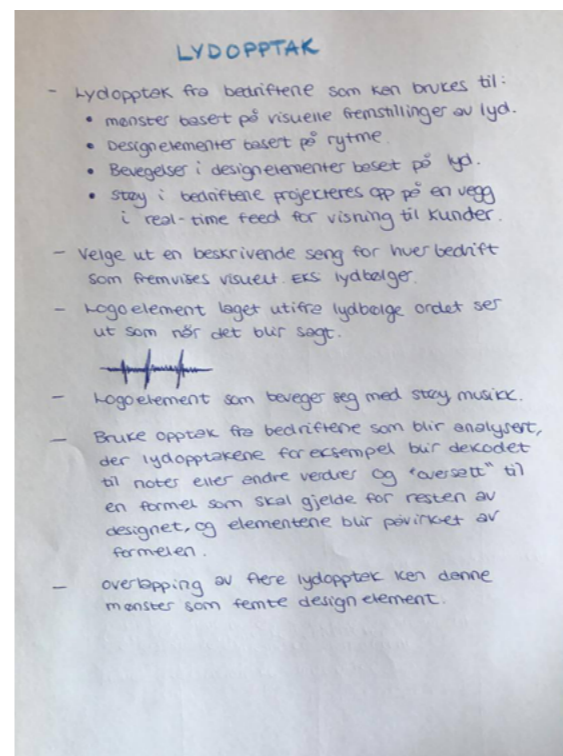 LYDOPPTAK
- Lydopptak fra bedriftene som kan brukes til:
• mønster basert på visuelle fremstillinger av lyd.
• Designelementer basert på rytme.
• Bevegelser i designelementer baset på lyd.
• støy i bedriftene projekteres opp på en vegg
i real-time feed for visning til kunder.
- Velge ut en beskrivende sang for hver bedrift
som fremvises visuelt. EKS lydbølger.
- Logoelement laget utifra lydbølge ordet ser
ut som når det blir sagt.
- Logoelement som beveger seg med støy musikk.
- Bruke opptak fra bedriftene som blir analysert,
der lydopptakene for eksempel blir dekodet
til noter eller andre verdier og "oversett" til
en formel som skal gjelde for resten av
designet, og elementene blir påvirket av
formelen.
- overlapping av flere lydopptak kan danne
mønster som femte design element.